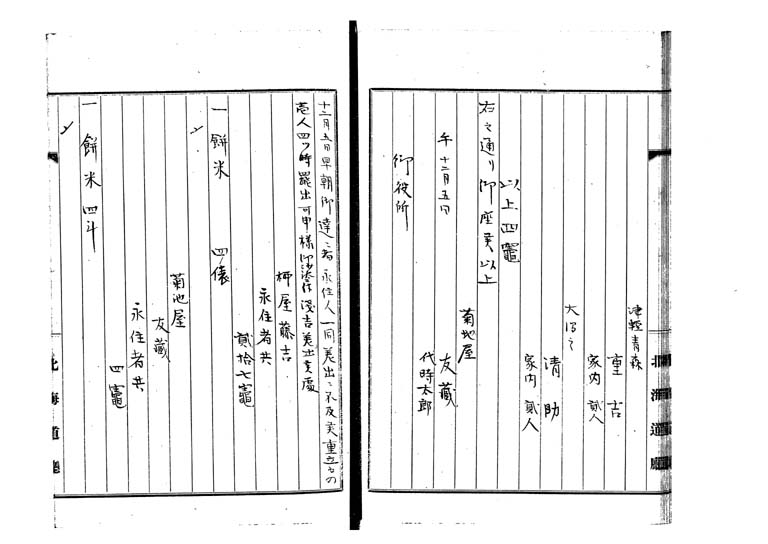 津軽青森
重吉
家内 貳人
清助
家内 貳人
以上 四竈
右之通り御座候以上
午 十二月五日
菊地屋
友蔵
代時太郎
御役所
北海道廳
十二月五日早朝御達ニ者永住人一同差出ニ不及候重立もの
壱人四ツ時罷出可申様 浅吉差出候處
柳屋藤吉
永住者共
貳拾七竈
一 餅米 四俵
〆
菊池屋
友蔵
永住者共
四竈
一 餅米 四斗
〆
北海道廳